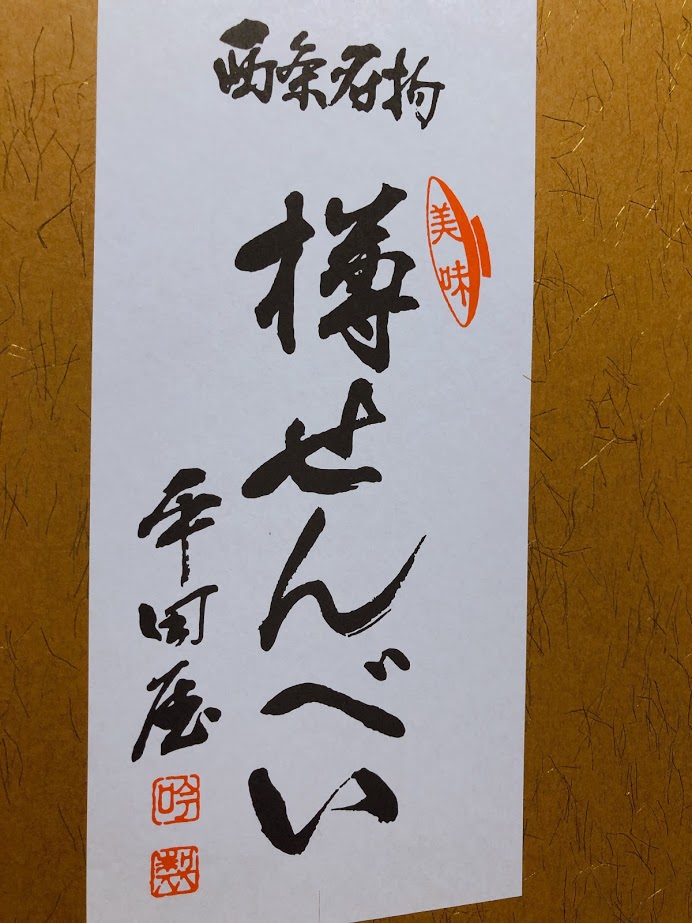 西条名物
美味
樽せんべい
平田屋
吟製